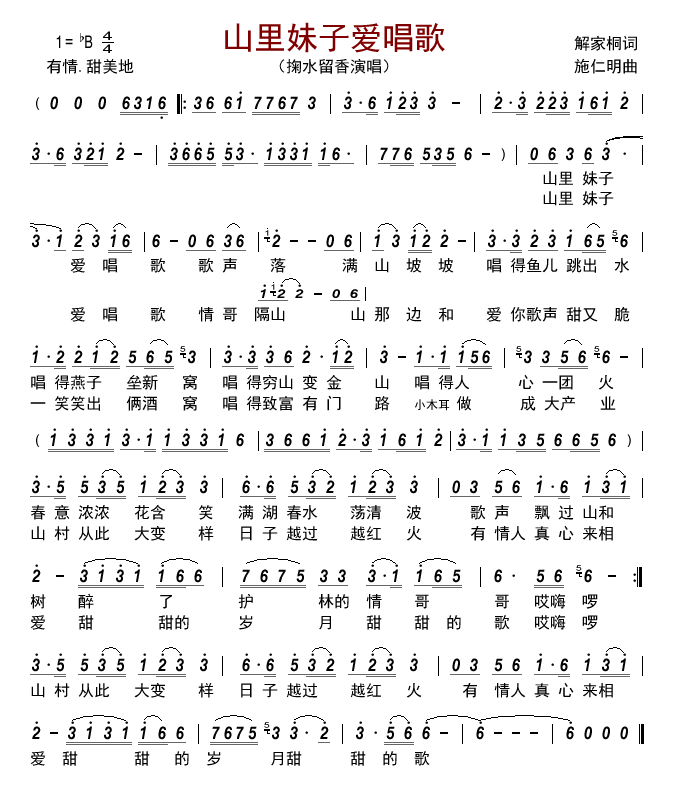 山里妹子爱唱歌
1= ♭B 4/4
解家桐词
有情.甜美地
(掬水留香演唱)
施仁明曲
( 0 0 0 6316 ‖: 36 61 7767 3 | 3·6 123 3 – | 2·3 223 161 2 |
3·6 321 2 – | 3665 53· 1331 16· | 776 535 6 – ) | 0 6 3 6 3 · |
山里 妹子
山里 妹子
3·1 2 3 16 | 6 – 0 6 36 | 12 – – 0 6 | 1 3 12 2 – | 3·3 2 3 1 65 56 |
爱 唱 歌 歌 声 落 满 山 坡 坡 唱 得鱼儿 跳出 水
1 12 2 – 0 6 |
爱 唱 歌 情 哥 隔山 山 那 边 和 爱 你歌声 甜又 脆
1·2 2 12 5 65 53 | 3·3 3 6 2 · 12 | 3 – 1·1 156 | 53 3 56 56 – |
唱 得燕子 垒新 窝 唱 得穷山 变 金 山 唱 得人 心 一团 火
一 笑笑出 俩酒 窝 唱 得致富 有 门 路 小木耳 做 成 大产 业
( 1331 3·1 1331 6 | 3661 2·3 1612 | 3·1 135 6656 ) |
3·5 535 123 3 | 6·6 532 123 1 | 0 3 56 1·6 131 |
春 意 浓浓 花含 笑 满 湖 春水 荡清 波 歌 声 飘 过 山和
山 村 从此 大变 样 日 子 越过 越红 火 有 情人 真 心 来相
2 – 3131 166 | 7675 33 3·1 165 | 6· 56 56 – :‖
树 醉 了 护 林的 情 哥 哥 哎嗨 啰
爱 甜 甜的 岁 月 甜 甜 的 歌 哎嗨 啰
3·5 535 123 3 | 6·6 532 123 1 | 03 56 1·6 131 |
山 村 从此 大变 样 日 子 越过 越红 火 有 情人 真 心 来相
2 – 3131 166 | 7675 53 3· 2 | 3· 56 6 – | 6 – – – | 6 0 0 0 ‖
爱 甜 甜 的 岁 月甜 甜 的 歌